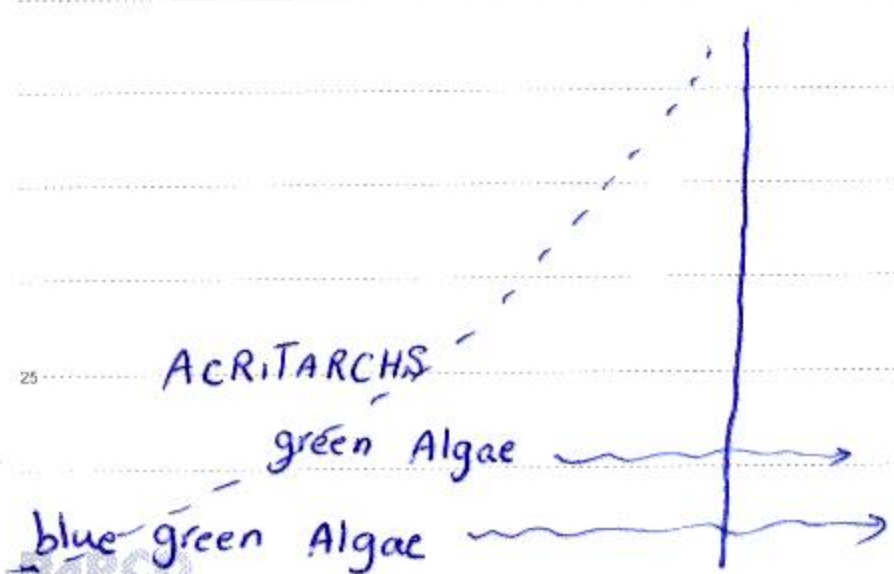 25
ACRITARCHS
green Algae
blue-green Algae